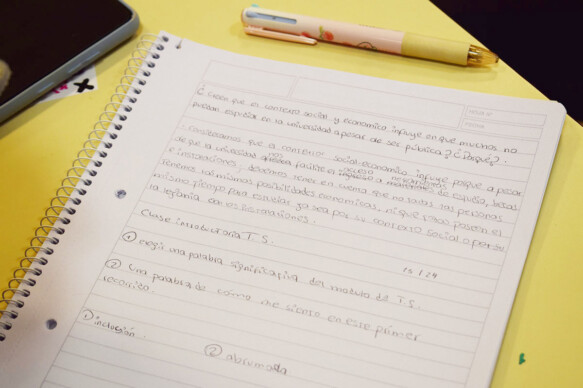 ¿Creen que el contexto social y economico influye en que muchos no
puedan estudiar en la universidad a pesar de ser pública? ¿Porqué?
Consideramos que el contexto social-economico influye porque a pesar
de que la universidad nos facilite el acceso a de estudio, becas
e inscripciones, debemos tener en cuenta que no todas las personas
tienen las mismas posibilidades economicas, ni que todos poseen el
mismo tiempo para estudiar ya sea por su contexto social o por
la lejania con las instituciones.
Clase introductoria T.S.
15/24
① elegir una palabra significativa del modulo de T.S.
② Una palabra de como me siento en este primer
recorrido.
① inclusión.
② abrumada